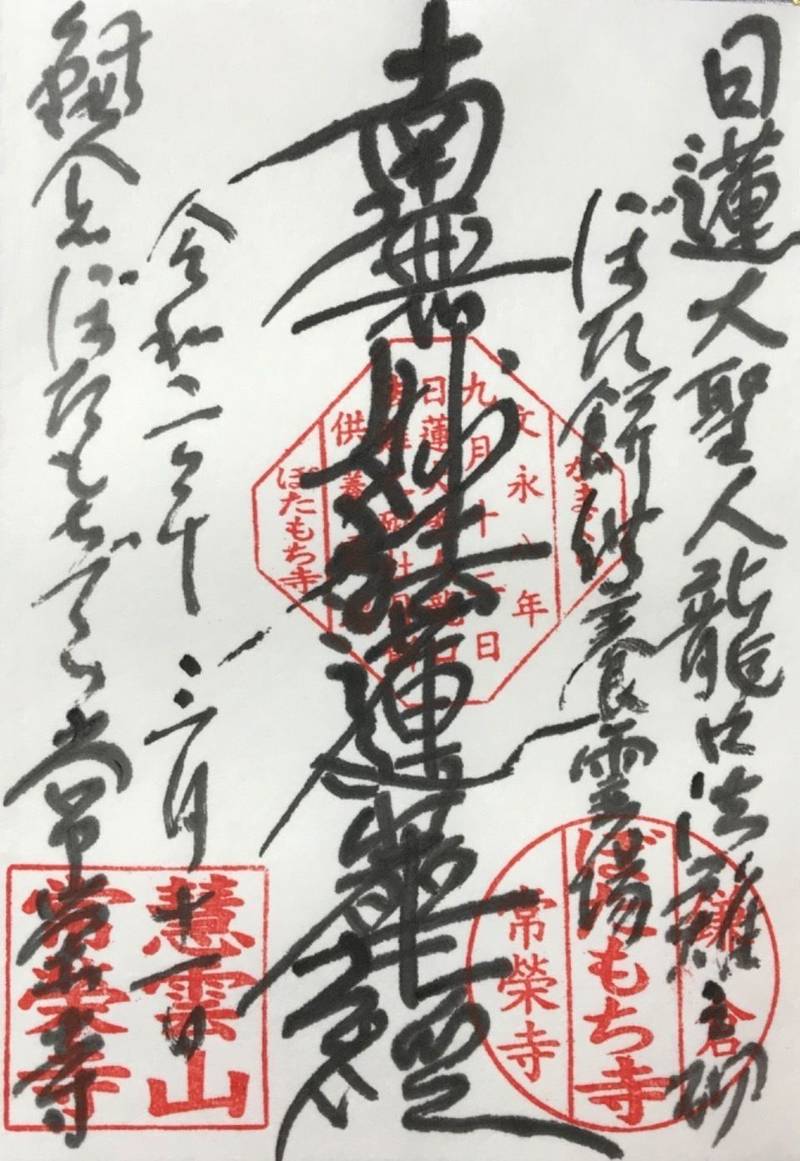 日蓮大聖人龍口法難之砌
ぼた餅供養霊場
南無妙法蓮華経
令和二年十二月十一日
鎌倉ぼたもちでら常栄寺
かまくら
文永八年
九月十二日
日蓮大聖人龍口
供養
ぼたもち寺
鎌倉
ぼたもち寺
常榮寺
慧雲山
常栄寺